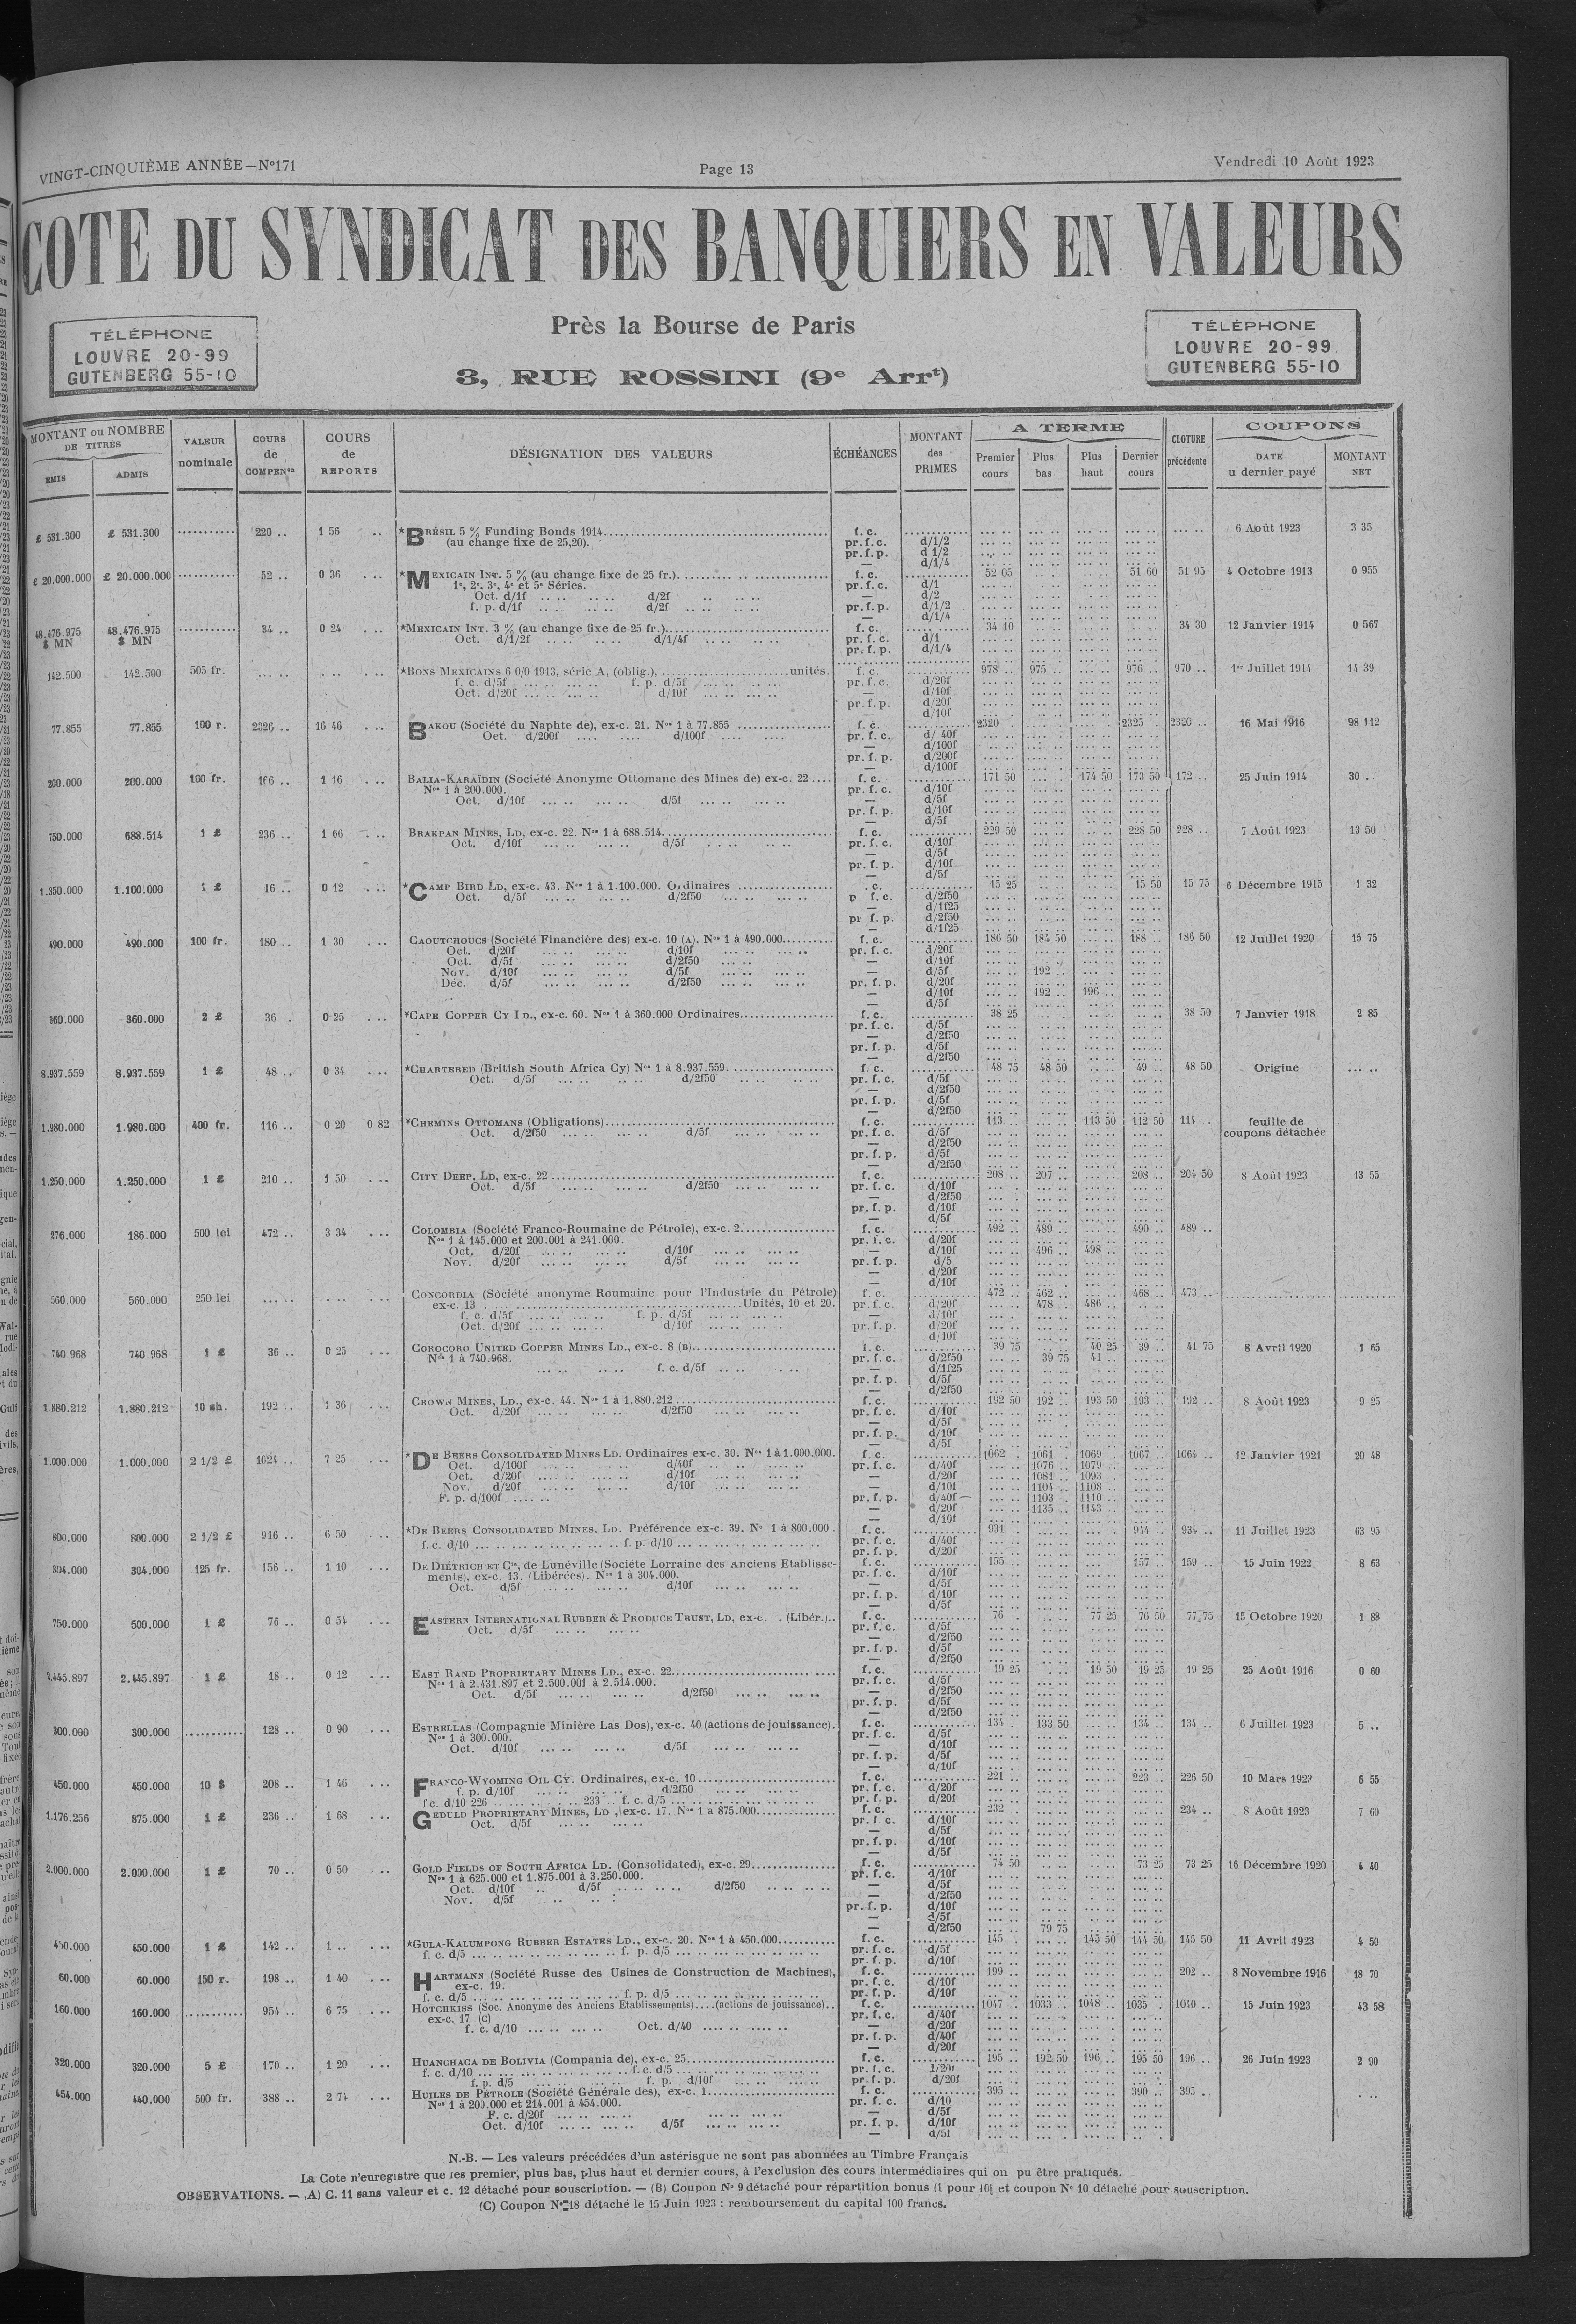 VINGT-CINQUIÈME ANNÉE—N°171 Page 13 Vendredi 10 Août 1923
COTE DU SYNDICAT DES BANQUIERS EN VALEURS
Près la Bourse de Paris
TÉLÉPHONE
LOUVRE 20-99
GUTENBERG 55-10
3, RUE ROSSINI (9e Arrt)
TÉLÉPHONE
LOUVRE 20-99
GUTENBERG 55-10
MONTANT ou NOMBRE DE TITRES
EMIS ADMIS
VALEUR nominale
COURS de COMPENon
COURS de REPORTS
DÉSIGNATION DES VALEURS
ÉCHÉANCES
MONTANT des PRIMES
A TERME
Premier cours Plus bas Plus haut Dernier cours
CLOTURE précédente
COUPONS
DATE u dernier payé MONTANT NET
£ 531.300 £ 531.300 220 .. 1 56 *BRÉSIL 5 % Funding Bonds 1914 f. c. 6 Août 1923 3 35
(au change fixe de 25,20). pr. f. c. d/1/2
pr. f. p. d 1/2
— d/1/4
£ 20.000.000 £ 20.000.000 52 .. 0 36 *MEXICAIN INT. 5 % (au change fixe de 25 fr.) f. c. 52 05 51 60 51 95 4 Octobre 1913 0 955
1e, 2e, 3e, 4e et 5e Séries. pr. f. c. d/1
Oct. d/1f d/2f — d/2
f. p. d/1f d/2f pr. f. p. d/1/2
— d/1/4
48.476.975 $ MN 48.476.975 $ MN 34 .. 0 24 *MEXICAIN INT. 3 % (au change fixe de 25 fr.) f. c. 34 10 34 30 12 Janvier 1914 0 567
Oct. d/1/2f d/1/4f pr. f. c. d/1
pr. f. p. d/1/4
142.500 142.500 505 fr. *BONS MEXICAINS 6 0/0 1913, série A, (oblig.) unités. f. c. 978 .. 975 .. 976 .. 970 .. 1er Juillet 1914 14 39
f. c. d/5f f. p. d/5f pr. f. c. d/20f
Oct. d/20f d/10f — d/10f
pr. f. p. d/20f
— d/10f
77.855 77.855 100 r. 2326 .. 16 46 BAKOU (Société du Naphte de), ex-c. 21. Nos 1 à 77.855 f. c. 2320 2325 .. 2320 .. 16 Mai 1916 98 112
Oct. d/200f d/100f pr. f. c. d/ 40f
— d/100f
pr. f. p. d/200f
— d/100f
200.000 200.000 100 fr. 166 .. 1 16 BALIA-KARAÏDIN (Société Anonyme Ottomane des Mines de) ex-c. 22 f. c. 171 50 174 50 173 50 172 .. 25 Juin 1914 30 .
Nos 1 à 200.000. pr. f. c. d/10f
Oct. d/10f d/5f — d/5f
pr. f. p. d/10f
— d/5f
750.000 688.514 1 £ 236 .. 1 66 BRAKPAN MINES, LD, ex-c. 22. Nos 1 à 688.514 f. c. 229 50 228 50 228 .. 7 Août 1923 13 50
Oct. d/10f d/5f pr. f. c. d/10f
— d/5f
pr. f. p. d/10f
— d/5f
1.350.000 1.100.000 1 £ 16 .. 0 12 *CAMP BIRD LD, ex-c. 43. Nos 1 à 1.100.000. Ordinaires . c. 15 25 15 50 15 75 6 Décembre 1915 1 32
Oct. d/5f d/2f50 p f. c. d/2f50
— d/1f25
pr f. p. d/2f50
— d/1f25
490.000 490.000 100 fr. 180 .. 1 30 CAOUTCHOUCS (Société Financière des) ex-c. 10 (A). Nos 1 à 490.000 f. c. 186 50 184 50 188 .. 186 50 12 Juillet 1920 15 75
Oct. d/20f d/10f pr. f. c. d/20f
Oct. d/5f d/2f50 — d/10f
Nov. d/10f d/5f — d/5f 192 ..
Déc. d/5f d/2f50 pr. f. p. d/20f
— d/10f 192 .. 196 ..
— d/5f
360.000 360.000 2 £ 36 . 0 25 *CAPE COPPER CY LD., ex-c. 60. Nos 1 à 360.000 Ordinaires f. c. 38 25 38 50 7 Janvier 1918 2 85
pr. f. c. d/5f
— d/2f50
pr. f. p. d/5f
— d/2f50
8.937.559 8.937.559 1 £ 48 .. 0 34 *CHARTERED (British South Africa Cy) Nos 1 à 8.937.559 f. c. 48 75 48 50 49 .. 48 50 Origine
Oct. d/5f d/2f50 pr. f. c. d/5f
— d/2f50
pr. f. p. d/5f
— d/2f50
1.980.000 1.980.000 400 fr. 116 .. 0 20 0 82 *CHEMINS OTTOMANS (Obligations) f. c. 113 .. 113 50 112 50 114 . feuille de coupons détachée
Oct. d/2f50 d/5f pr. f. c. d/5f
— d/2f50
pr. f. p. d/5f
— d/2f50
1.250.000 1.250.000 1 £ 210 .. 1 50 CITY DEEP, LD, ex-c. 22 f. c. 208 .. 207 .. 208 .. 204 50 8 Août 1923 13 55
Oct. d/5f d/2f50 pr. f. c. d/10f
— d/2f50
pr. f. p. d/10f
— d/5f
276.000 186.000 500 lei 472 .. 3 34 COLOMBIA (Société Franco-Roumaine de Pétrole), ex-c. 2 f. c. 492 .. 489 .. 490 .. 489 ..
Nos 1 à 145.000 et 200.001 à 241.000. pr. f. c. d/20f
Oct. d/20f d/10f — d/10f 496 .. 498 ..
Nov. d/20f d/5f pr. f. p. d/5
— d/20f
— d/10f
560.000 560.000 250 lei CONCORDIA (Société anonyme Roumaine pour l'Industrie du Pétrole) f. c. 472 .. 462 .. 468 .. 473 ..
ex-c. 13 Unités, 10 et 20. pr. f. c. d/20f 478 .. 486 ..
f. c. d/5f f. p. d/5f — d/10f
Oct. d/20f d/10f pr. f. p. d/20f
— d/10f
740.968 740 968 1 £ 36 .. 0 25 COROCORO UNITED COPPER MINES LD., ex-c. 8 (B) f. c. 39 75 40 25 39 .. 41 75 8 Avril 1920 1 65
Nos 1 à 740.968. pr. f. c. d/2f50 39 75 41 ..
f. c. d/5f — d/1f25
pr. f. p. d/5f
— d/2f50
1.880.212 1.880.212 10 sh. 192 .. 1 36 CROWN MINES, LD., ex-c. 44. Nos 1 à 1.880.212 f. c. 192 50 192 .. 193 50 193 .. 192 .. 8 Août 1923 9 25
Oct. d/20f d/2f50 pr. f. c. d/10f
— d/5f
pr. f. p. d/10f
— d/5f
1.000.000 1.000.000 2 1/2 £ 1024 .. 7 25 *DE BEERS CONSOLIDATED MINES LD. Ordinaires ex-c. 30. Nos 1 à 1.000.000. f. c. 1062 . 1061 .. 1069 .. 1067 .. 1064 .. 12 Janvier 1921 20 48
Oct. d/100f d/40f pr. f. c. d/40f 1076 .. 1079 ..
Oct. d/20f d/10f — d/20f 1081 .. 1093 .
Nov. d/20f d/10f — d/10f 1104 .. 1108 ..
F. p. d/100f pr. f. p. d/40f 1103 . 1110 ..
— d/20f 1135 .. 1143 ..
— d/10f
800.000 800.000 2 1/2 £ 916 .. 6 50 *DE BEERS CONSOLIDATED MINES. LD. Préférence ex-c. 39. Nos 1 à 800.000 . f. c. 931 . 944 . 934 .. 11 Juillet 1923 63 95
f. c. d/10 f. p. d/10 pr. f. c. d/40f
pr. f. p. d/20f
304.000 304.000 125 fr. 156 .. 1 10 DE DIÉTRICH ET Cie, de Lunéville (Société Lorraine des Anciens Etablisse- f. c. 155 157 .. 159 .. 15 Juin 1922 8 63
ments), ex-c. 13. (Libérées). Nos 1 à 304.000. pr. f. c. d/10f
Oct. d/5f d/10f — d/5f
pr. f. p. d/10f
— d/5f
750.000 500.000 1 £ 76 .. 0 54 EASTERN INTERNATIONAL RUBBER & PRODUCE TRUST, LD, ex-c. . (Libér.).. f. c. 76 . 77 25 76 50 77 75 15 Octobre 1920 1 88
Oct. d/5f pr. f. c. d/5f
— d/2f50
pr. f. p. d/5f
— d/2f50
2.445.897 2.445.897 1 £ 18 .. 0 12 EAST RAND PROPRIETARY MINES LD., ex-c. 22 f. c. 19 25 19 50 19 25 19 25 25 Août 1916 0 60
Nos 1 à 2.431.897 et 2.500.001 à 2.514.000. pr. f. c. d/5f
Oct. d/5f d/2f50 — d/2f50
pr. f. p. d/5f
— d/2f50
300.000 300.000 128 .. 0 90 ESTRELLAS (Compagnie Minière Las Dos), ex-c. 40 (actions de jouissance). f. c. 134 . 133 50 134 .. 134 .. 6 Juillet 1923 5 ..
Nos 1 à 300.000. pr. f. c. d/5f
Oct. d/10f d/5f — d/10f
pr. f. p. d/5f
— d/10f
450.000 450.000 10 $ 208 .. 1 46 FRANCO-WYOMING OIL CY. Ordinaires, ex-c. 10 f. c. 221 .. 223 .. 226 50 10 Mars 1922 6 55
f. p. d/10f d/2f50 pr. f. c. d/20f
f c. d/10 226 233 f. c. d/5 pr. f. p. d/20f
1.176.256 875.000 1 £ 236 .. 1 68 GEDULD PROPRIETARY MINES, LD , ex-c. 17. Nos 1 à 875.000 f. c. 232 234 .. 8 Août 1923 7 60
Oct. d/5f pr. f. c. d/10f
— d/5f
pr. f. p. d/10f
— d/5f
2.000.000 2.000.000 1 £ 70 .. 0 50 GOLD FIELDS OF SOUTH AFRICA LD. (Consolidated), ex-c. 29 f. c. 74 50 73 25 73 25 16 Décembre 1920 4 40
Nos 1 à 625.000 et 1.875.001 à 3.250.000. pr. f. c. d/10f
Oct. d/10f d/5f d/2f50 — d/5f
Nov. d/5f — d/2f50
pr. f. p. d/10f
— d/5f
— d/2f50 79 75
450.000 450.000 1 £ 142 .. 1 .. *GULA-KALUMPONG RUBBER ESTATES LD., ex-c. 20. Nos 1 à 450.000 f. c. 145 . 145 50 144 50 145 50 11 Avril 1923 4 50
f. c. d/5 f. p. d/5 pr. f. c. d/5f
pr. f. p. d/10f
60.000 60.000 150 r. 198 .. 1 40 HARTMANN (Société Russe des Usines de Construction de Machines), f. c. 199 .. 202 .. 8 Novembre 1916 18 70
ex-c. 19. pr. f. c. d/10f
f. c. d/5 f. p. d/5 pr. f. p. d/10f
160.000 160.000 954 .. 6 75 HOTCHKISS (Soc. Anonyme des Anciens Etablissements)....(actions de jouissance).. f. c. 1047 .. 1033 . 1048 .. 1035 . 1040 .. 15 Juin 1923 43 58
ex-c. 17 (C) pr. f. c. d/40f
f. c. d/10 Oct. d/40 — d/20f
pr. f. p. d/40f
— d/20f
320.000 320.000 5 £ 170 .. 1 20 HUANCHACA DE BOLIVIA (Compania de), ex-c. 25 f. c. 195 .. 192 50 196 .. 195 50 196 .. 26 Juin 1923 2 90
f. c. d/10 f. c. d/5 pr. f. c. 1/20f
f. p. d/5 f. p. d/10f pr. f. p. d/20f
454.000 440.000 500 fr. 388 .. 2 74 HUILES DE PÉTROLE (Société Générale des), ex-c. 1 f. c. 395 .. 390 .. 395 .
Nos 1 à 200.000 et 214.001 à 454.000. pr. f. c. d/10
F. c. d/20f — d/5f
Oct. d/10f d/5f pr. f. p. d/10f
— d/5f
N.-B. — Les valeurs précédées d'un astérisque ne sont pas abonnées au Timbre Français
La Cote n'enregistre que les premier, plus bas, plus haut et dernier cours, à l'exclusion des cours intermédiaires qui on pu être pratiqués.
OBSERVATIONS. — (A) C. 11 sans valeur et c. 12 détaché pour souscription. — (B) Coupon No 9 détaché pour répartition bonus (1 pour 10) et coupon No 10 détaché pour souscription.
(C) Coupon No 18 détaché le 15 Juin 1923 : remboursement du capital 100 francs.